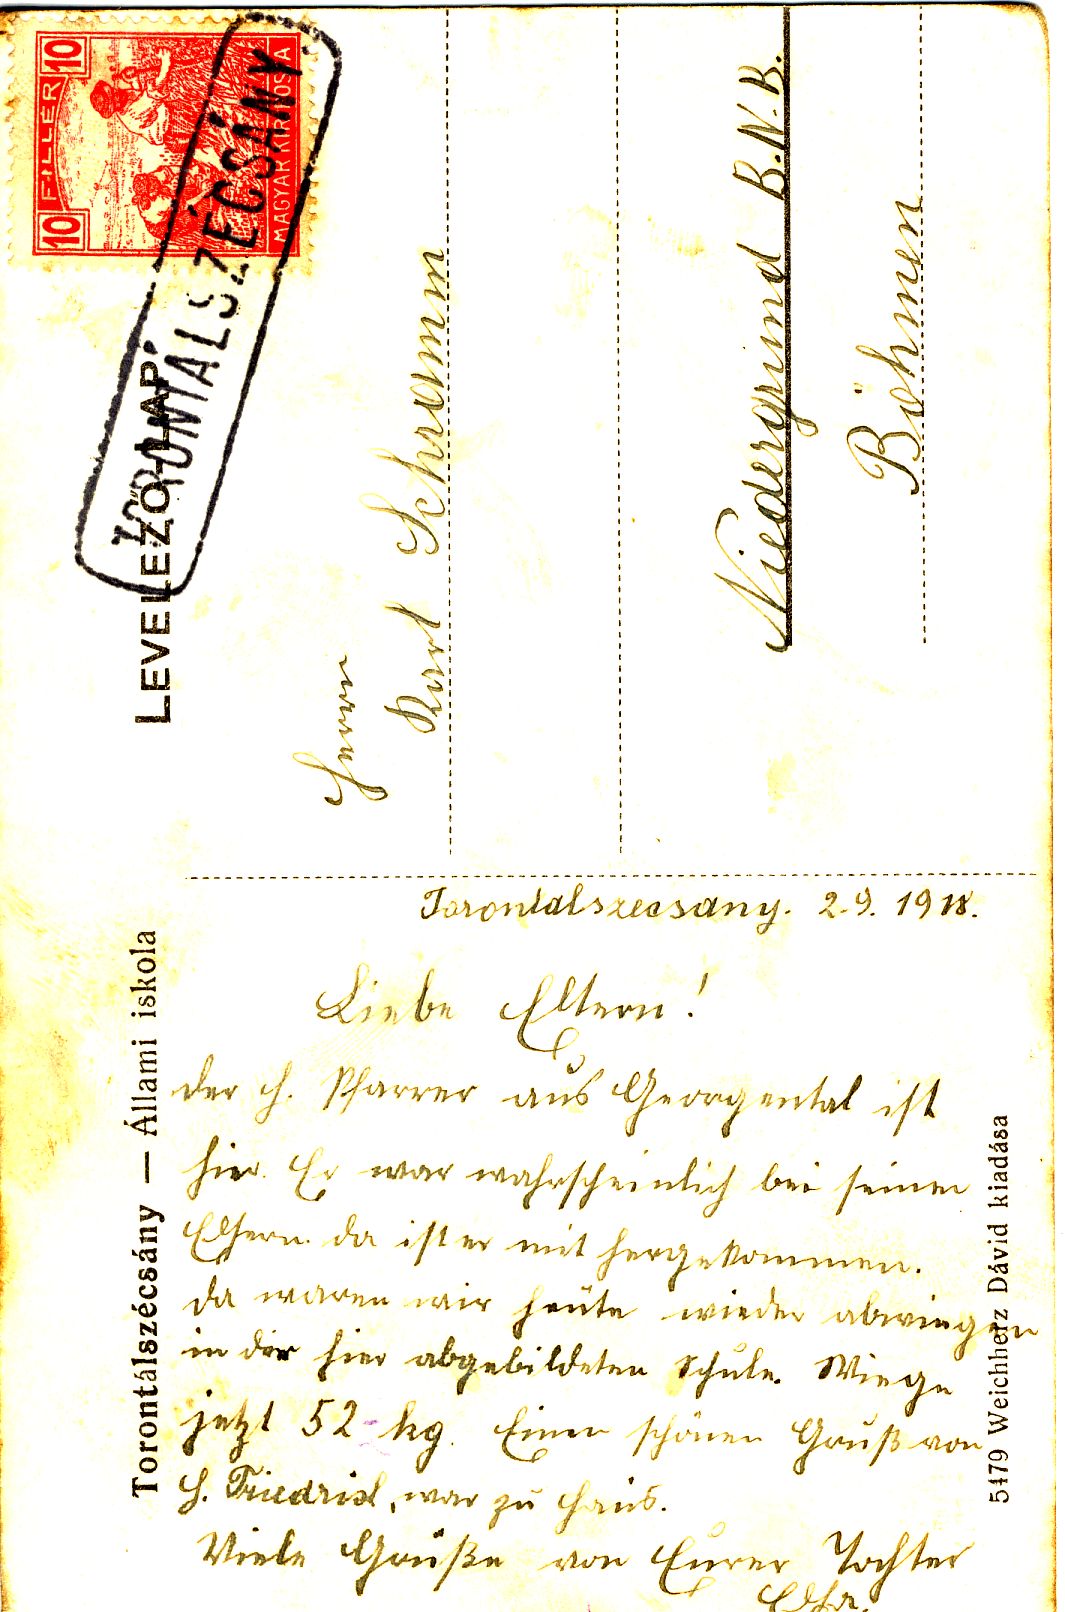 10 FILLÉR 10
MAGYAR KIR. POSTA
TORONTÁLSZÉCSÁNY
LEVELEZŐ-LAP.
Herrn
Karl Schramm
Niedergrund B.N.B.
Böhmen
Torontálszécsány — Állami iskola
Torontalszecsany. 2.9. 1918.
Liebe Eltern!
der H. Pfarrer aus Georgental ist
hier. Er war wahrscheinlich bei seinen
Eltern. da ist er mit hergekommen.
da waren wir heute wieder abwiegen
in der hier abgebildeten Schule. Wiege
jetzt 52 kg. Einen schönen Gruß von
H. Friedrich, war zu Haus.
Viele Grüße von Eurer Tochter
Elsa.
5479 Weichherz Dávid kiadása